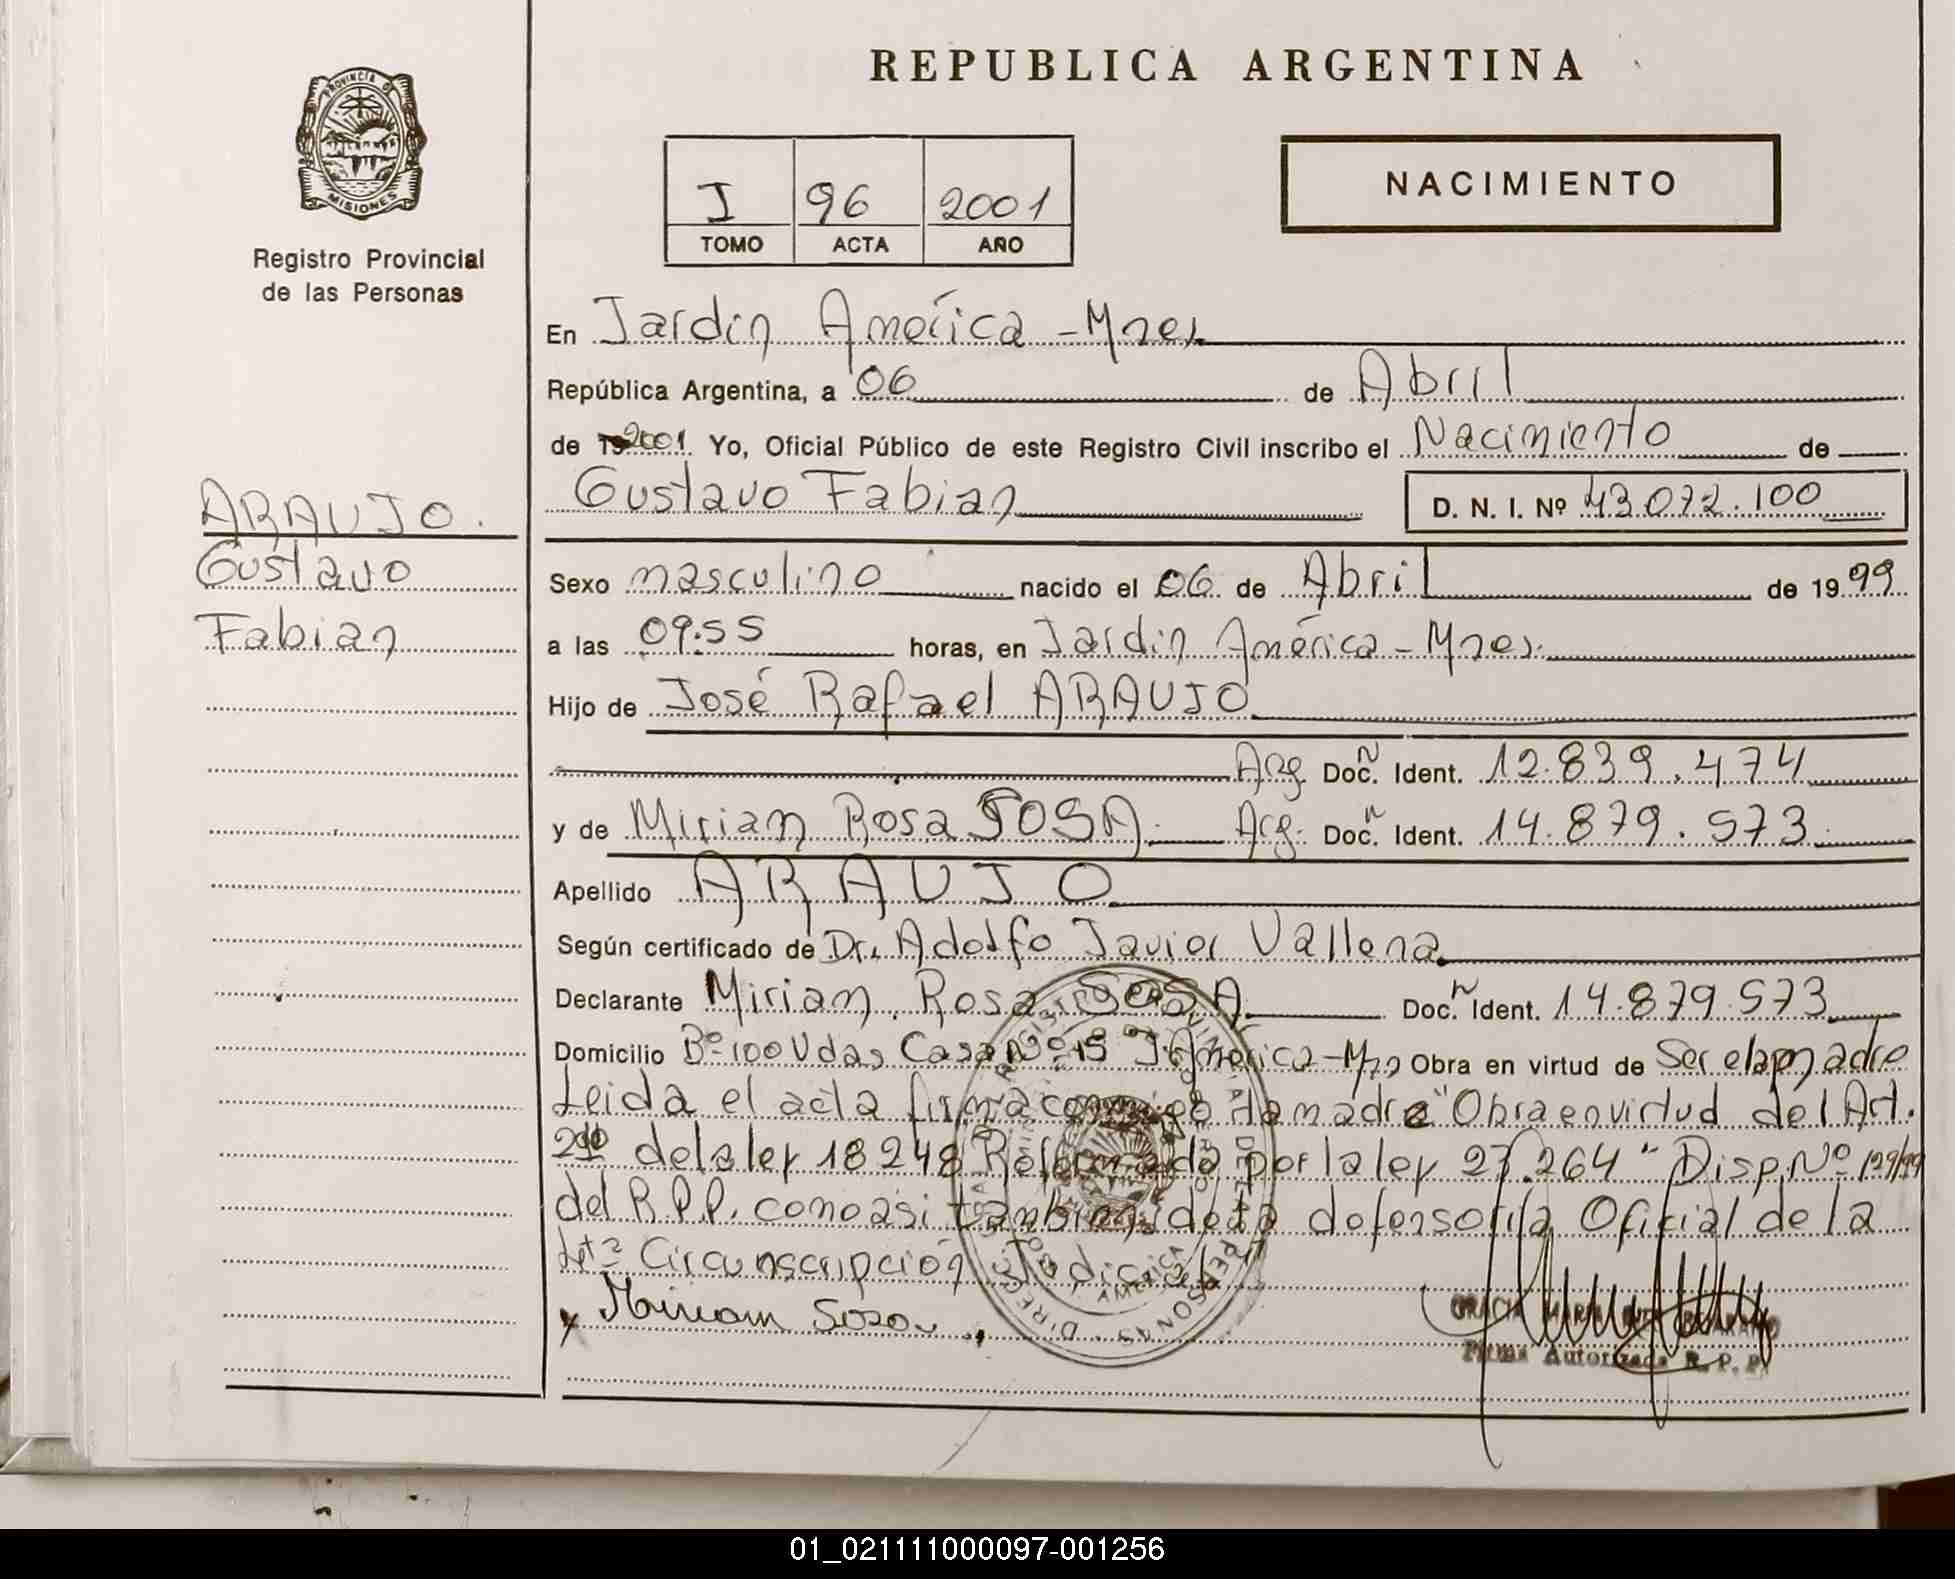 REPUBLICA ARGENTINA
PROVINCIA DE
MISIONES
Registro Provincial
de las Personas
I 96 2001
TOMO ACTA AÑO
NACIMIENTO
En Jardín América - Mnes.
República Argentina, a 06 de Abril
de 2001. Yo, Oficial Público de este Registro Civil inscribo el Nacimiento de
Gustavo Fabian D. N. I. Nº 43.072.100
ARAUJO.
Gustavo
Fabian
Sexo masculino nacido el 06 de Abril de 1999
a las 09.55 horas, en Jardín América - Mnes.
Hijo de José Rafael ARAUJO
Arg. Doc. Ident. 12.839.474
y de Mirian Rosa SOSA. Arg. Doc. Ident. 14.879.573.
Apellido ARAUJO
Según certificado de Dr. Adolfo Javier Vallena
Declarante Mirian Rosa SOSA Doc. Ident. 14.879.573
Domicilio Bº 100 Vdas Casa Nº J. América - Obra en virtud de Ser la madre
Leida el acta firma conmigo la madre "Obra en virtud del Art.
2do de la ley 18248 Reformada por la ley 23.264" Disp. Nº
del R.P.P. como asi tambien de la defensoria Oficial de la
Circunscripción Judicial.
x Miriam Sosa
Firma Autorizada R. P. P.
01_021111000097-001256